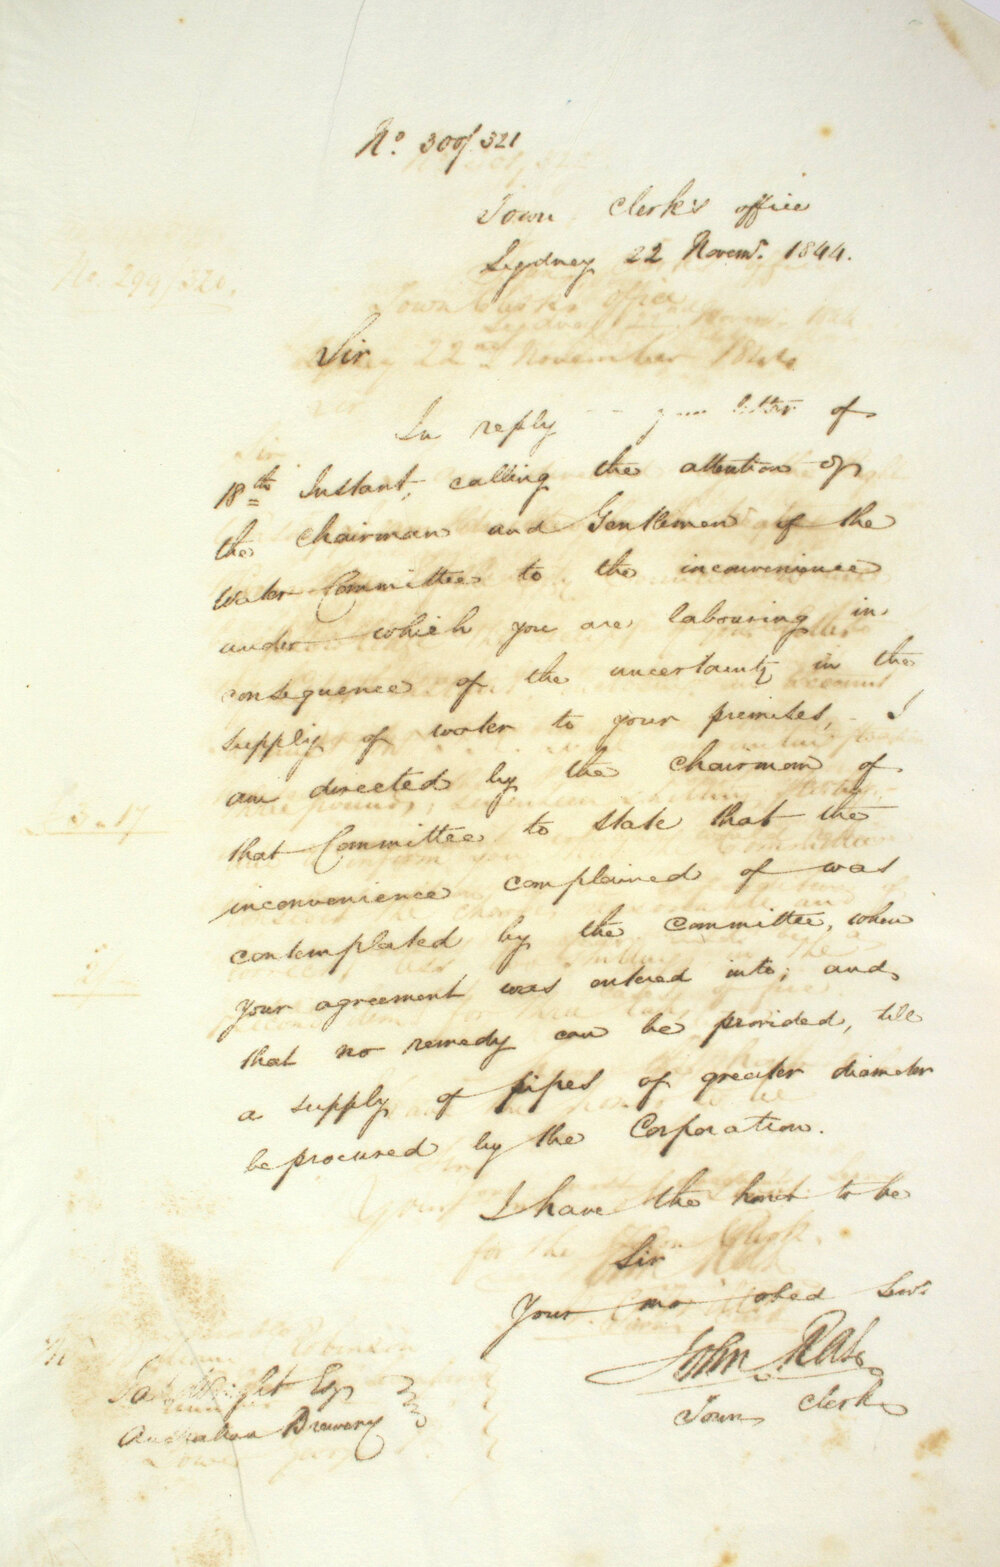 No. 300/321
Town Clerk's office
Sydney 22 Novemr. 1844.
Sir
In reply your letter of
18th Instant, calling the attention of
the Chairman and Gentlemen of the
Water Committee to the inconvenience
under which you are labouring in
consequence of the uncertainty in the
supply of water to your premises, - I
am directed by the Chairman of
that Committee to state that the
inconvenience complained of was
contemplated by the Committee, when
your agreement was entered into; and
that no remedy can be provided, till
a supply of pipes of greater diameter
be procured by the Corporation.
I have the honor to be
Sir
Your mo obed Servt
John Rae
Town Clerk
Wright Esq
Australian Brewery
No. 299/320.
22nd November 1844
3 . 17